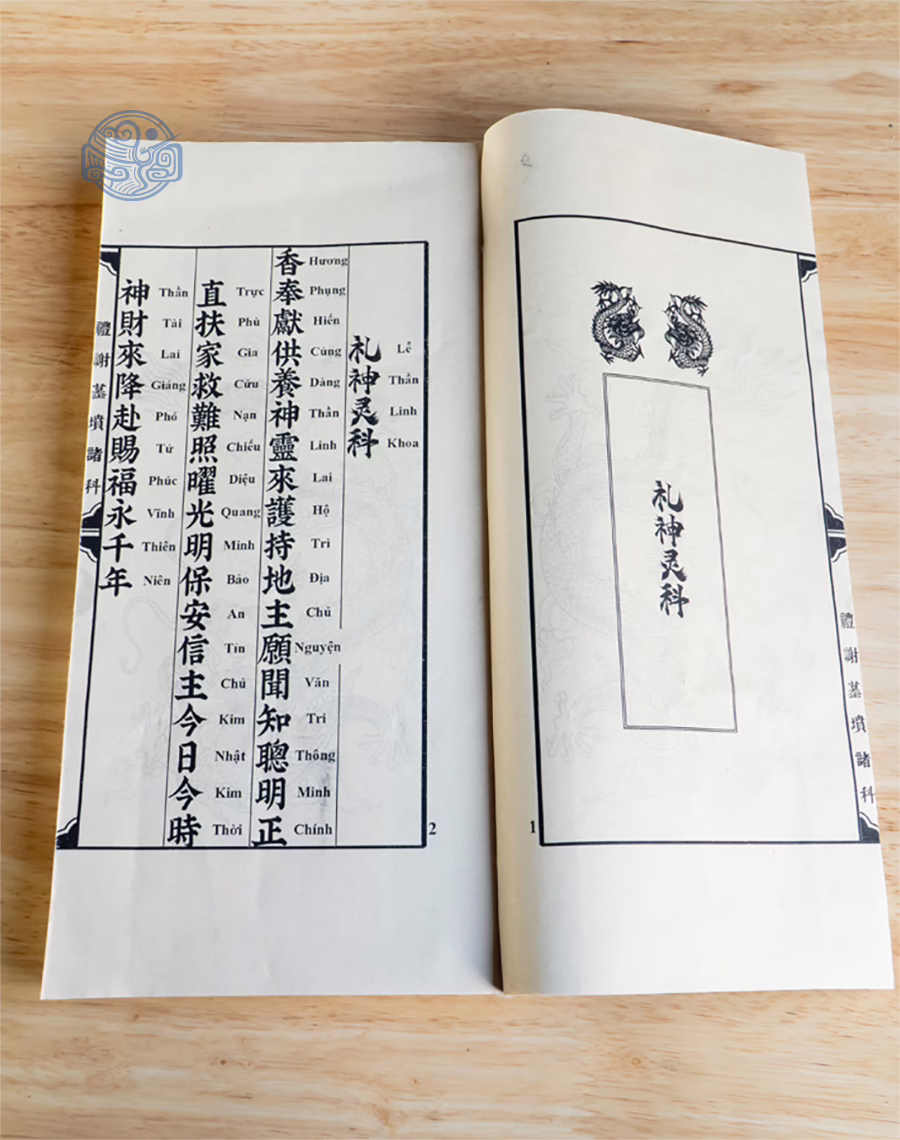 禮謝墓墳諸科
札神灵科
1
2
札神灵科
Lễ Thần Linh Khoa
香奉獻供養神靈來護持地主願聞知聰明正
Hương Phụng Hiến Cúng Dàng Thần Linh Lai Hộ Trì Địa Chủ Nguyện Văn Tri Thông Minh Chính
直扶家救難照曜光明保安信主今日今時
Trực Phù Gia Cứu Nạn Chiếu Diệu Quang Minh Bảo An Tín Chủ Kim Nhật Kim Thời
神財來降赴賜福永千年
Thần Tài Lai Giáng Phó Tứ Phúc Vĩnh Thiên Niên
禮謝墓墳諸科